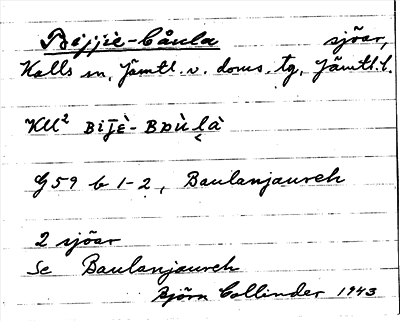 Bijjiē-Cåula sjöar,
Kalls sn, Jämtl. v. doms. tg, Jämtl. l.
KU² Biꞁ̄ḙ̀-Bᴅùl̯à
G59 b 1-2, Baulanjaureh
2 sjöar
Se Baulanjaureh
Björn Collinder 1943